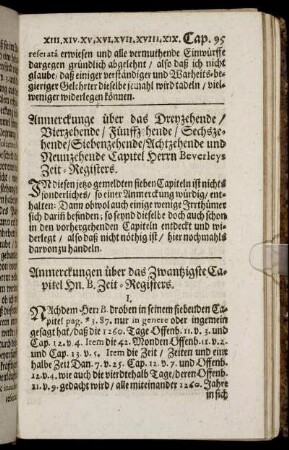 XIII.XIV.XV.XVI.XVII.XVIII.XIX. Cap. 95
reserata erwiesen und alle vermuthende Einwürffe
dargegen gründlich abgelehnt / also daß ich nicht
glaube / daß einiger verständiger und Warheits-be-
gieriger Gelehrter dieselbe jemahl wird tadeln / viel-
weniger widerlegen können.
Anmerckunge über das Dreyzehende /
Vierzehende / Fünffzehende / Sechsze-
hende / Siebenzehende / Achtzehende und
Neunzehende Capitel Herrn Beverleys
Zeit-Registers.
IN diesen jetzo gemeldten sieben Capiteln ist nichts
sonderliches / so einer Anmerckung würdig / ent-
halten: Dann obwol auch einige wenige Irrthümer
sich darin befinden; so seynd dieselbe doch auch schon
in den vorhergehenden Capiteln entdeckt und wi-
derlegt / also daß nicht nöthig ist / hier nochmahls
darvon zu handeln.
Anmerckungen über das Zwantzigste Ca-
pitel Hn. B. Zeit-Registers.
I.
NAchdem Herr B. droben in seinem siebenden Ca-
pitel pag. 187. nur in genere oder ingemein
gesagt hat / daß die 1260. Tage Offenb. 11. v. 3. und
Cap. 12. v. 4. Item die 42. Monden Offenb. 11. v. 2.
und Cap. 13. v. 5. Item die Zeit / Zeiten und eine
halbe Zeit Dan. 7. v. 25. Cap. 12. v. 7. und Offenb.
12. v. 4. wie auch die vierdtehalb Tage / deren Offenb.
11. v. 9. gedacht wird / alle miteinander 1260. Jahre
in sich